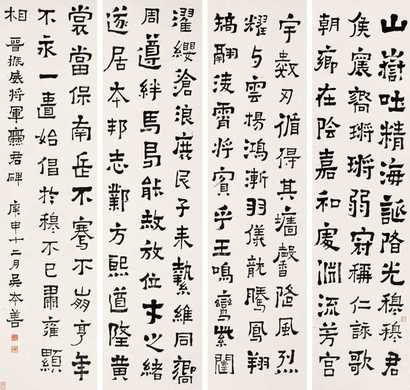 山嶽吐精海誕降光穆穆君
侯震響鏘鏘弱冠稱仁詠歌
朝鄉在陰嘉和處淵流芳宮
宇數刃循得其墻馨隆風烈
耀與雲揚鴻漸羽儀龍騰鳳翔
矯翮淩霄將賓乎王鳴鸞紫闥
濯纓滄浪庶民子來縶維同嚮
周遵絆馬曷能赦放位才之緒
遂居本邦志鄴方熙道隆黃
裳當保南岳不騫不崩享年
不永一匱始倡於穆不已肅雍顯
相 晉振威將軍爨君碑 庚申十二月吳本善